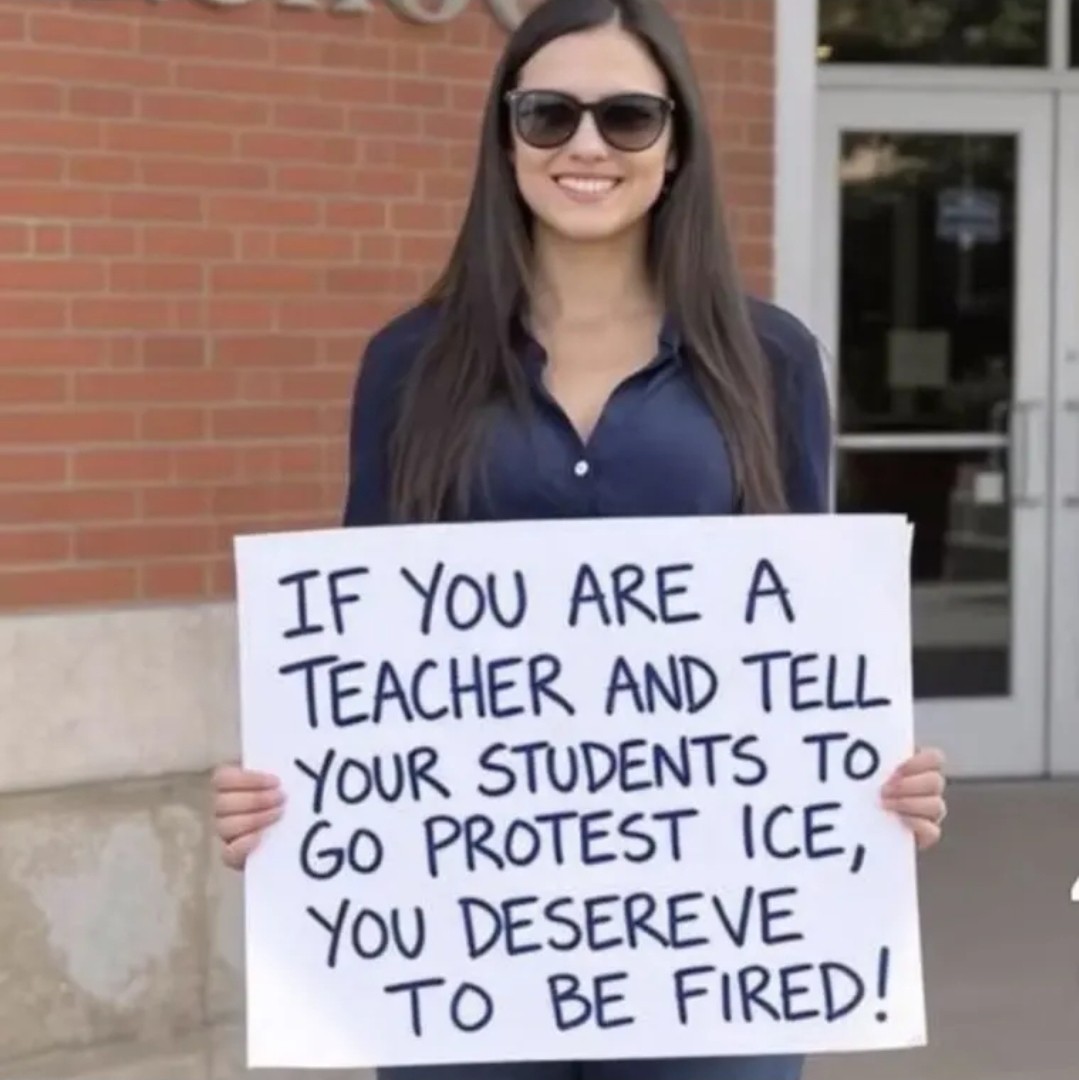 IF YOU ARE A
TEACHER AND TELL
YOUR STUDENTS TO
GO PROTEST ICE,
YOU DESEREVE
TO BE FIRED!